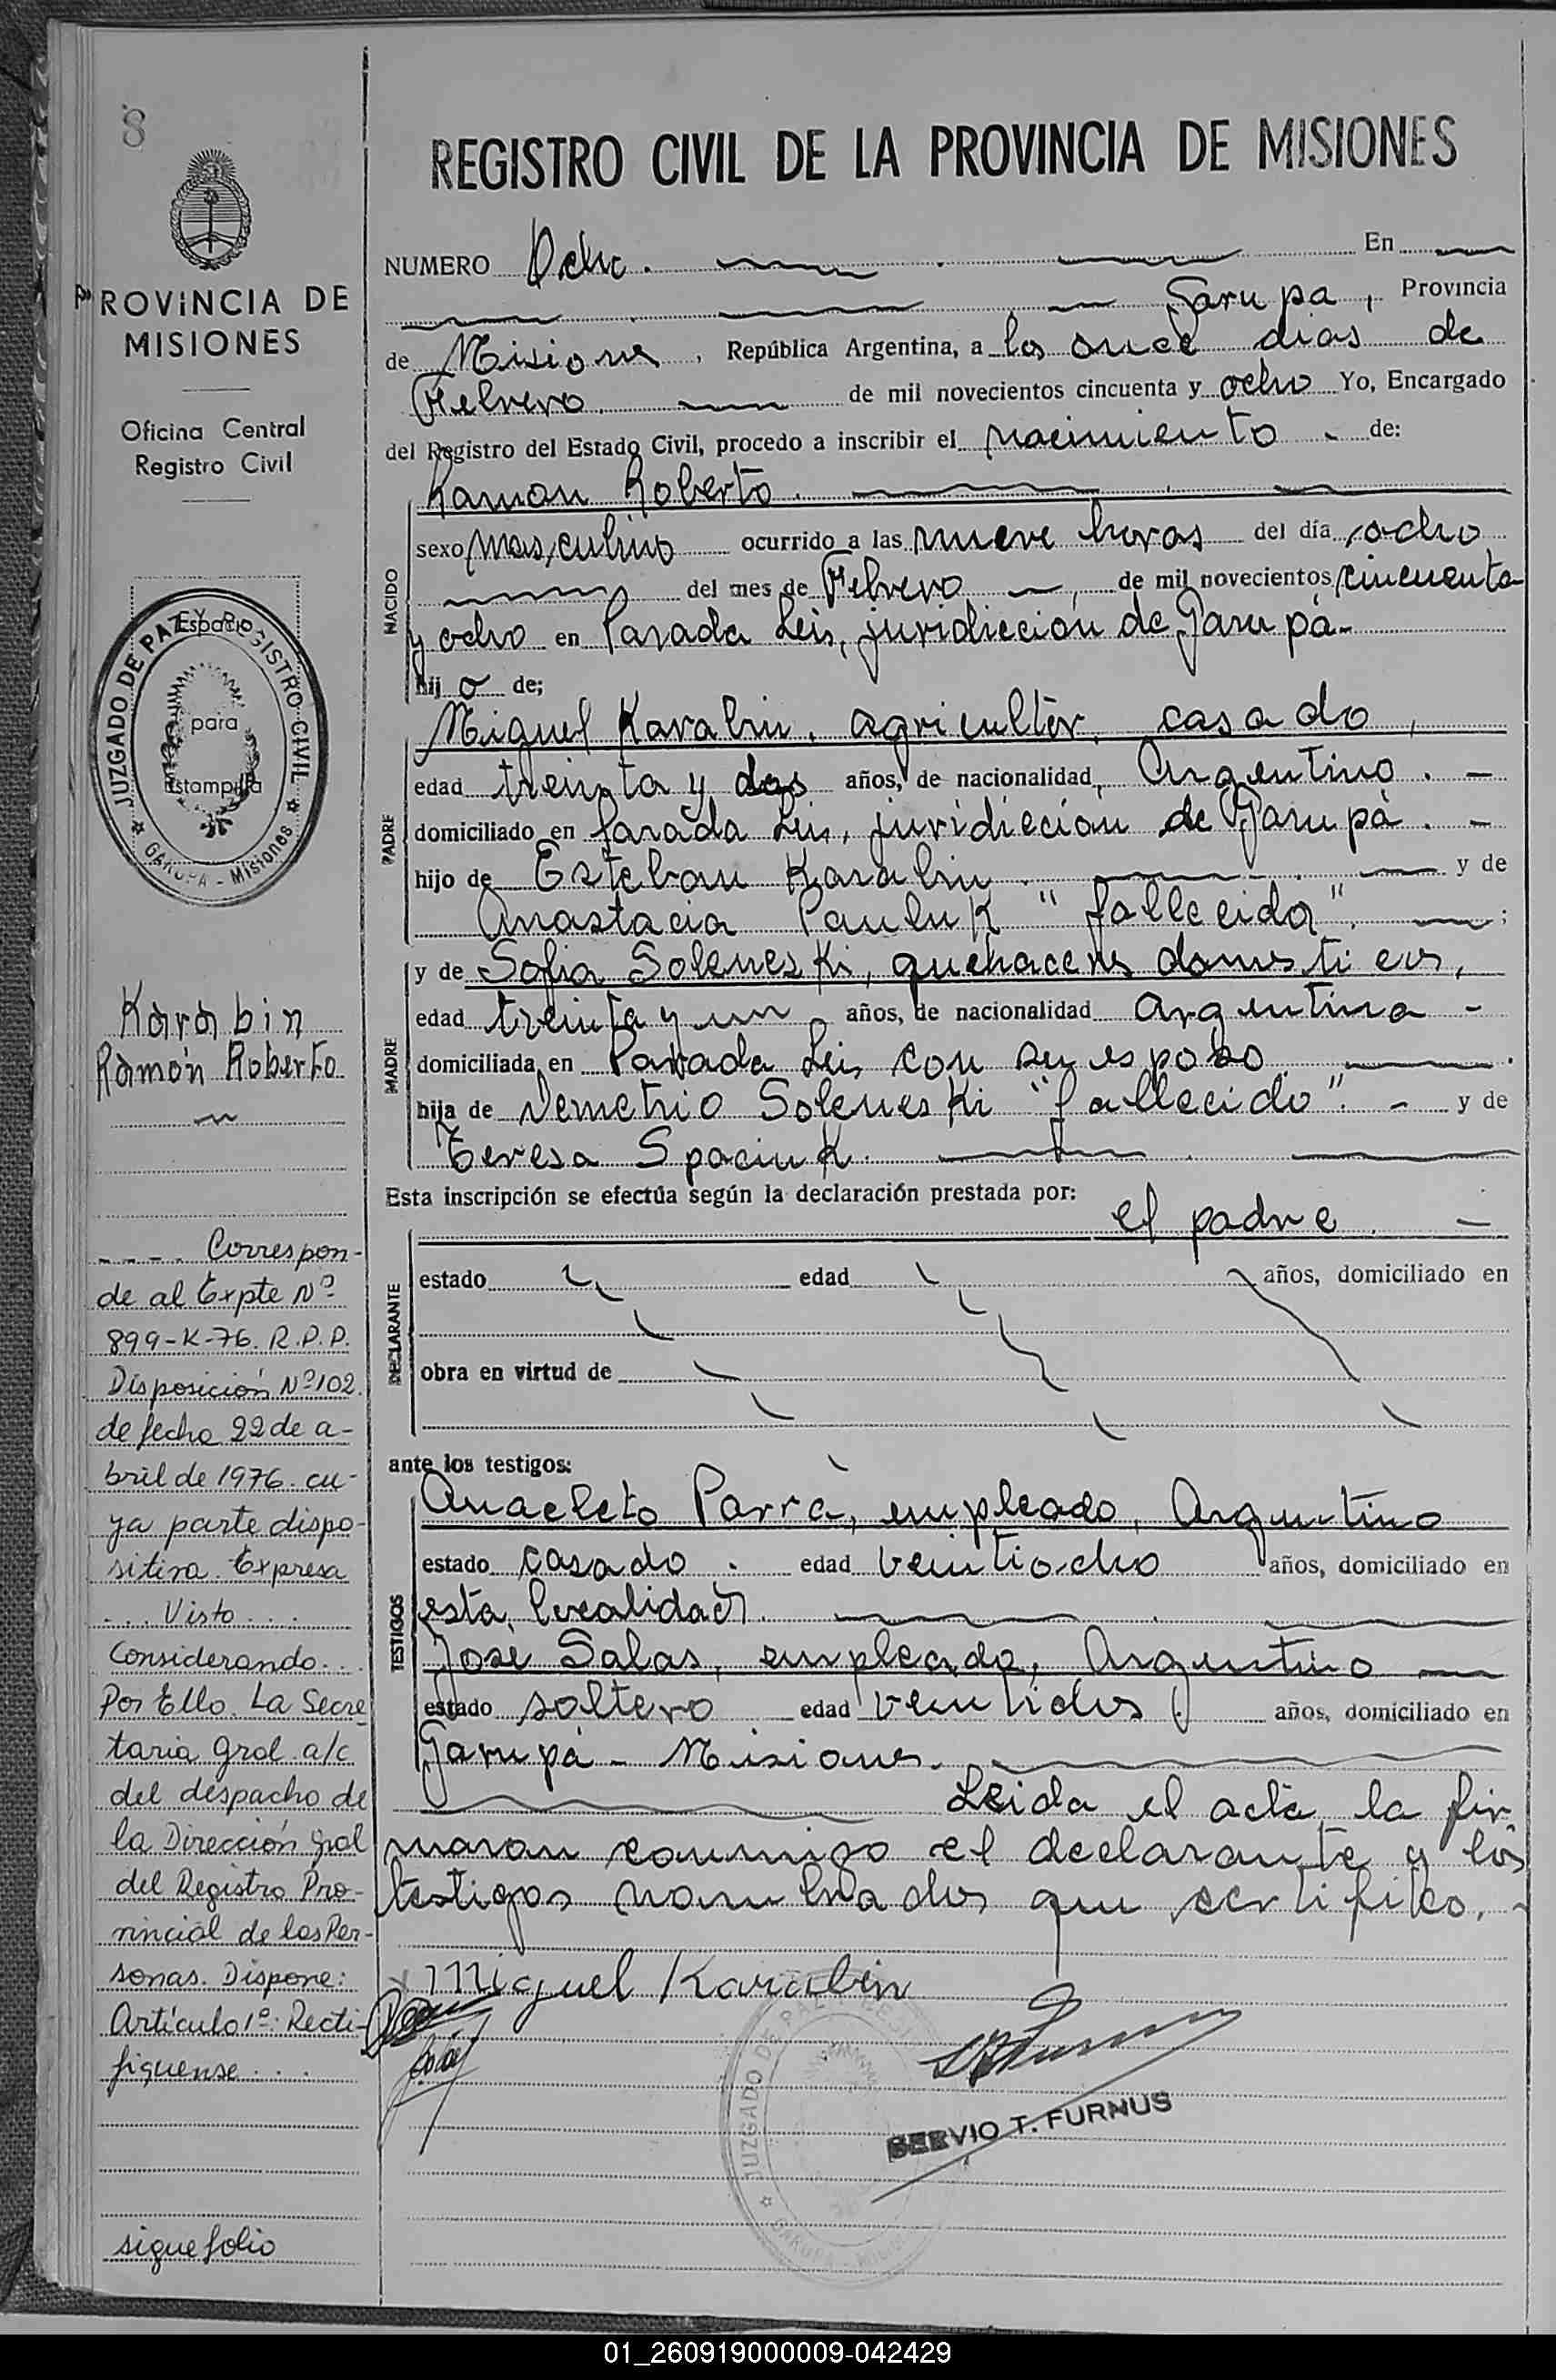 8
REGISTRO CIVIL DE LA PROVINCIA DE MISIONES
PROVINCIA DE
MISIONES
Oficina Central
Registro Civil
JUZGADO DE PAZ Y REGISTRO CIVIL
GARUPA - Misiones
Espacio
para
Estampilla
Karabin
Ramón Roberto
.... Correspon-
de al Expte Nº
899-K-76. R.P.P.
Disposición Nº 102
de fecha 22 de a-
bril de 1976. cu-
ya parte dispo-
sitiva. Expresa
... Visto ...
Considerando...
Por Ello. La Secre
taria Gral a/c
del despacho de
la Dirección Gral
del Registro Pro-
vincial de las Per-
sonas. Dispone:
Artículo 1º: Recti-
fiquense ...
sigue folio
NUMERO Ocho. En
Garupa, Provincia
de Misiones, República Argentina, a los once dias de
Febrero de mil novecientos cincuenta y ocho Yo, Encargado
del Registro del Estado Civil, procedo a inscribir el nacimiento - de:
Ramon Roberto.
NACIDO
sexo masculino ocurrido a las nueve horas del día ocho
del mes de Febrero, de mil novecientos cincuenta
y ocho en Parada Leis, juridiccion de Garupá-
hijo de;
PADRE
Miguel Karabin, agricultor, casado,
edad treinta y dos años, de nacionalidad, Argentino. -
domiciliado en Parada Leis, juridiccion de Garupá. -
hijo de Esteban Karabin. y de
Anastacia Pauluk "fallecida". ;
MADRE
y de Sofia Soleneski, quehaceres domesticos,
edad treinta y un años, de nacionalidad Argentina -
domiciliada en Parada Leis con su esposo.
hija de Demetrio Soleneski "fallecido". - y de
Teresa Spaciuk.
Esta inscripción se efectúa según la declaración prestada por:
el padre. -
DECLARANTE
estado edad años, domiciliado en
obra en virtud de
ante los testigos:
TESTIGOS
Anacleto Parrà, empleado, Argentino
estado casado. edad veintiocho años, domiciliado en
esta localidad.
Jose Salas, empleado, Argentino
estado soltero edad ventidos años, domiciliado en
Garupá - Misiones.
Leida el acta la fir
maron conmigo el declarante y los
testigos nombrados que certifico. -
Miguel Karabin
JUZGADO DE PAZ
SERVIO T. FURNUS
01_260919000009-042429